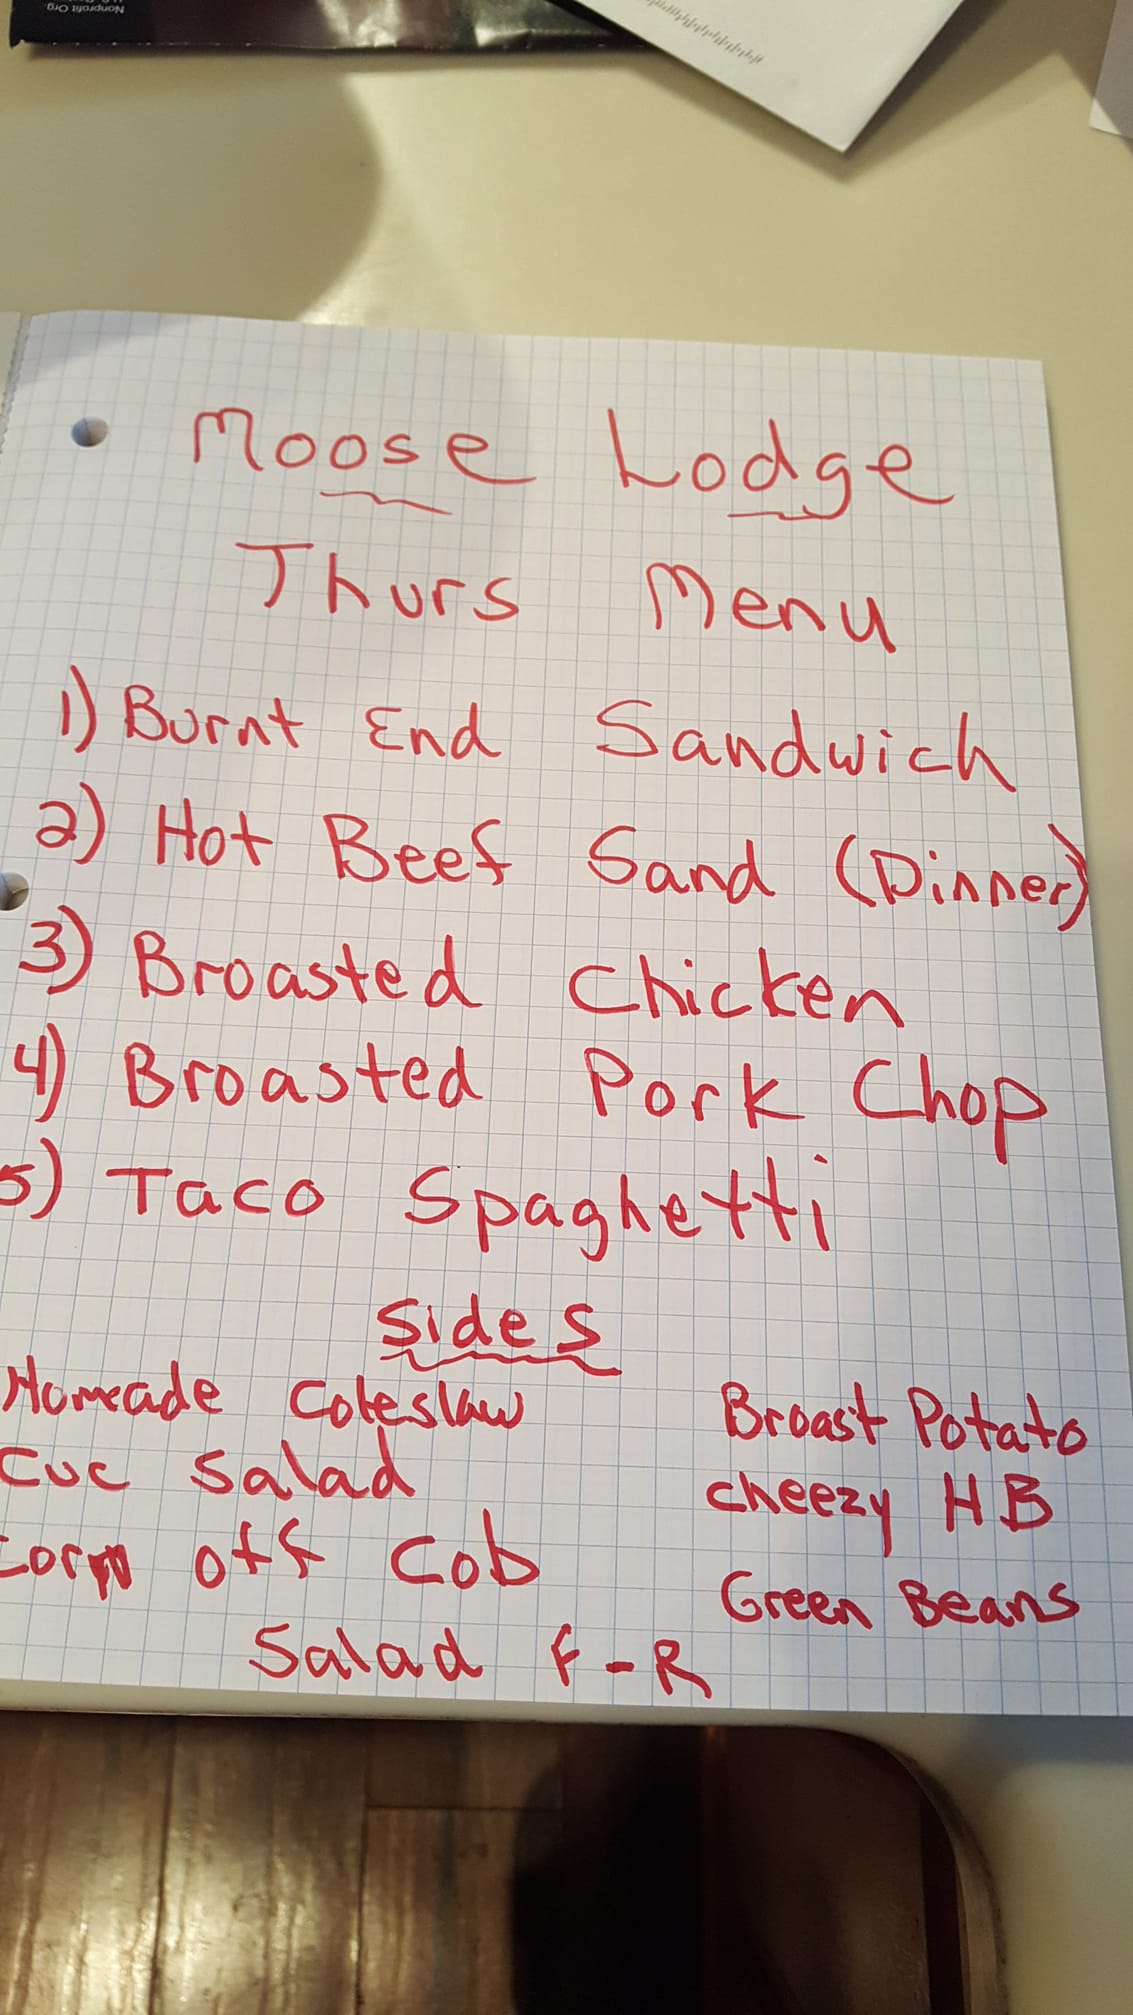 Nonprofit Org.
Moose Lodge
Thurs Menu
1) Burnt End Sandwich
2) Hot Beef Sand (Dinner)
3) Broasted Chicken
4) Broasted Pork Chop
5) Taco Spaghetti
Sides
Homeade Coleslaw
Broast Potato
Cuc Salad
Cheezy HB
Corn off Cob
Green Beans
Salad F-R